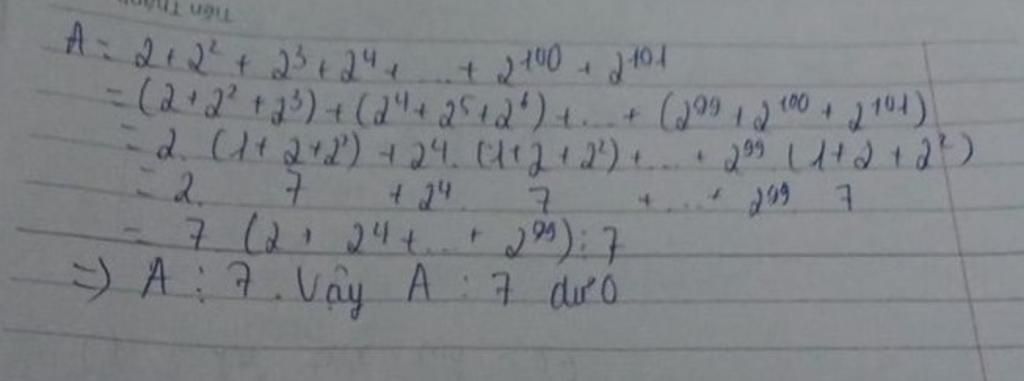 A = 2 + 2² + 2³ + 2⁴ + ... + 2¹⁰⁰ + 2¹⁰¹
= (2 + 2² + 2³) + (2⁴ + 2⁵ + 2⁶) + ... + (2⁹⁹ + 2¹⁰⁰ + 2¹⁰¹)
= 2. (1 + 2 + 2²) + 2⁴. (1 + 2 + 2²) + ... + 2⁹⁹ (1 + 2 + 2²)
= 2. 7 + 2⁴. 7 + ... + 2⁹⁹ 7
= 7 (2 + 2⁴ + ... + 2⁹⁹) ⋮ 7
=> A ⋮ 7. Vậy A : 7 dư 0